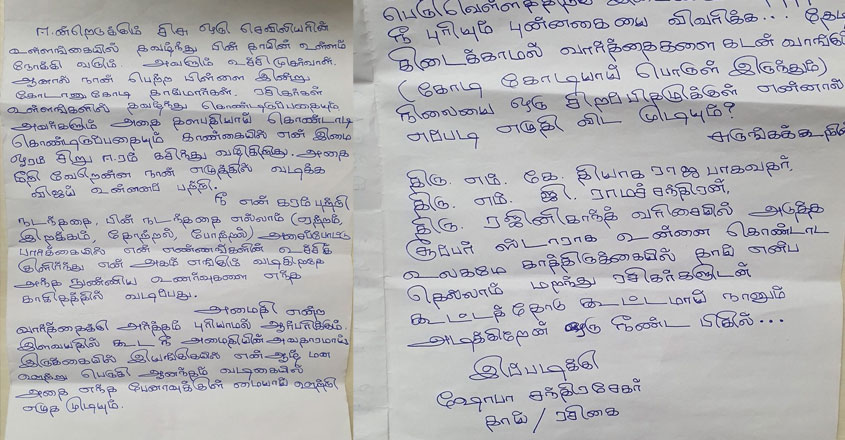 ஈன்றெடுக்கும் சிசு ஒரு செவிலியரின்
உள்ளங்கையில் தவழ்ந்து பின் தாயின் உள்ளம்
நோக்கி வரும். அவளும் உச்சிமுகர்வாள்.
ஆனால் நான் பெற்ற பிள்ளை இன்று
கோடானுகோடி தாய்மார்கள். ரசிகர்கள்
உள்ளங்களில் தவழ்ந்து கொண்டிருப்பதையும்
அவர்களும் அதை தளபதியாய் கொண்டாடி
கொண்டிருப்பதையும் காண்கையில் என் இமை
ஓரம் சிறு ஈரம் கசிந்து வழிகிறது. அதை
மீறி வேறென்ன நான் எழுத்தில் வடிக்க
விஜய் உன்னைப் பத்தி.
நீ என் கரம் பத்தி
நடந்ததை, பின் நடந்ததை எல்லாம் (ஏற்றம்,
இறக்கம், தோற்றல், போற்றல்) அசைப்போட்டு
பார்க்கையில் என் எண்ணங்களின் உச்சிக்
குளிர்ந்து என் அகம் எங்கும் வடிகிறதே
அந்த நுண்ணிய உணர்வுகளை எந்த
காகிதத்தில் வடிப்பது.
அமைதி என்ற
வார்த்தைக்கு அர்த்தம் புரியாமல் ஆர்பரிக்கும்
இளவயதில் கூட நீ அமைதியின் அவதாரமாய்
இருக்கையில் இயங்குகையில் என் ஆழ் மன
ஊற்று பெருகி ஆனந்தம் வடிகையில்
அதை எந்த பேனாவுக்குள் மையாய் ஊத்தி
எழுத முடியும்.
பெருவெள்ளத்
நீ புரியும் புன்னகையை விவரிக்க...
கிடைக்காமல் வார்த்தைகளை கடன் வாங்கி
(கோடி கோடியாய் பொருள் இருந்தும்)
நிலையை ஒரு சிறப்பிதழுக்குள் என்னால்
எப்படி எழுதி விட முடியும்?
சுருங்கக்கூறின்
திரு. எம். கே. தியாகராஜ பாகவதர்,
திரு. எம். ஜி. ராமச்சந்திரன்,
திரு. ரஜினிகாந்த் வரிசையில் அடுத்த
சூப்பர் ஸ்டாராக உன்னை கொண்டாட
உலகமே காத்திருக்கையில் தாய் என்ப
தெல்லாம் மறந்து ரசிகர்களுடன்
கூட்டத்தோடு கூட்டமாய் நானும்
அடிக்கிறேன் ஒரு நீண்ட விசில்...
இப்படிக்கு
ஷோபா சந்திரசேகர்
தாய் / ரசிகை